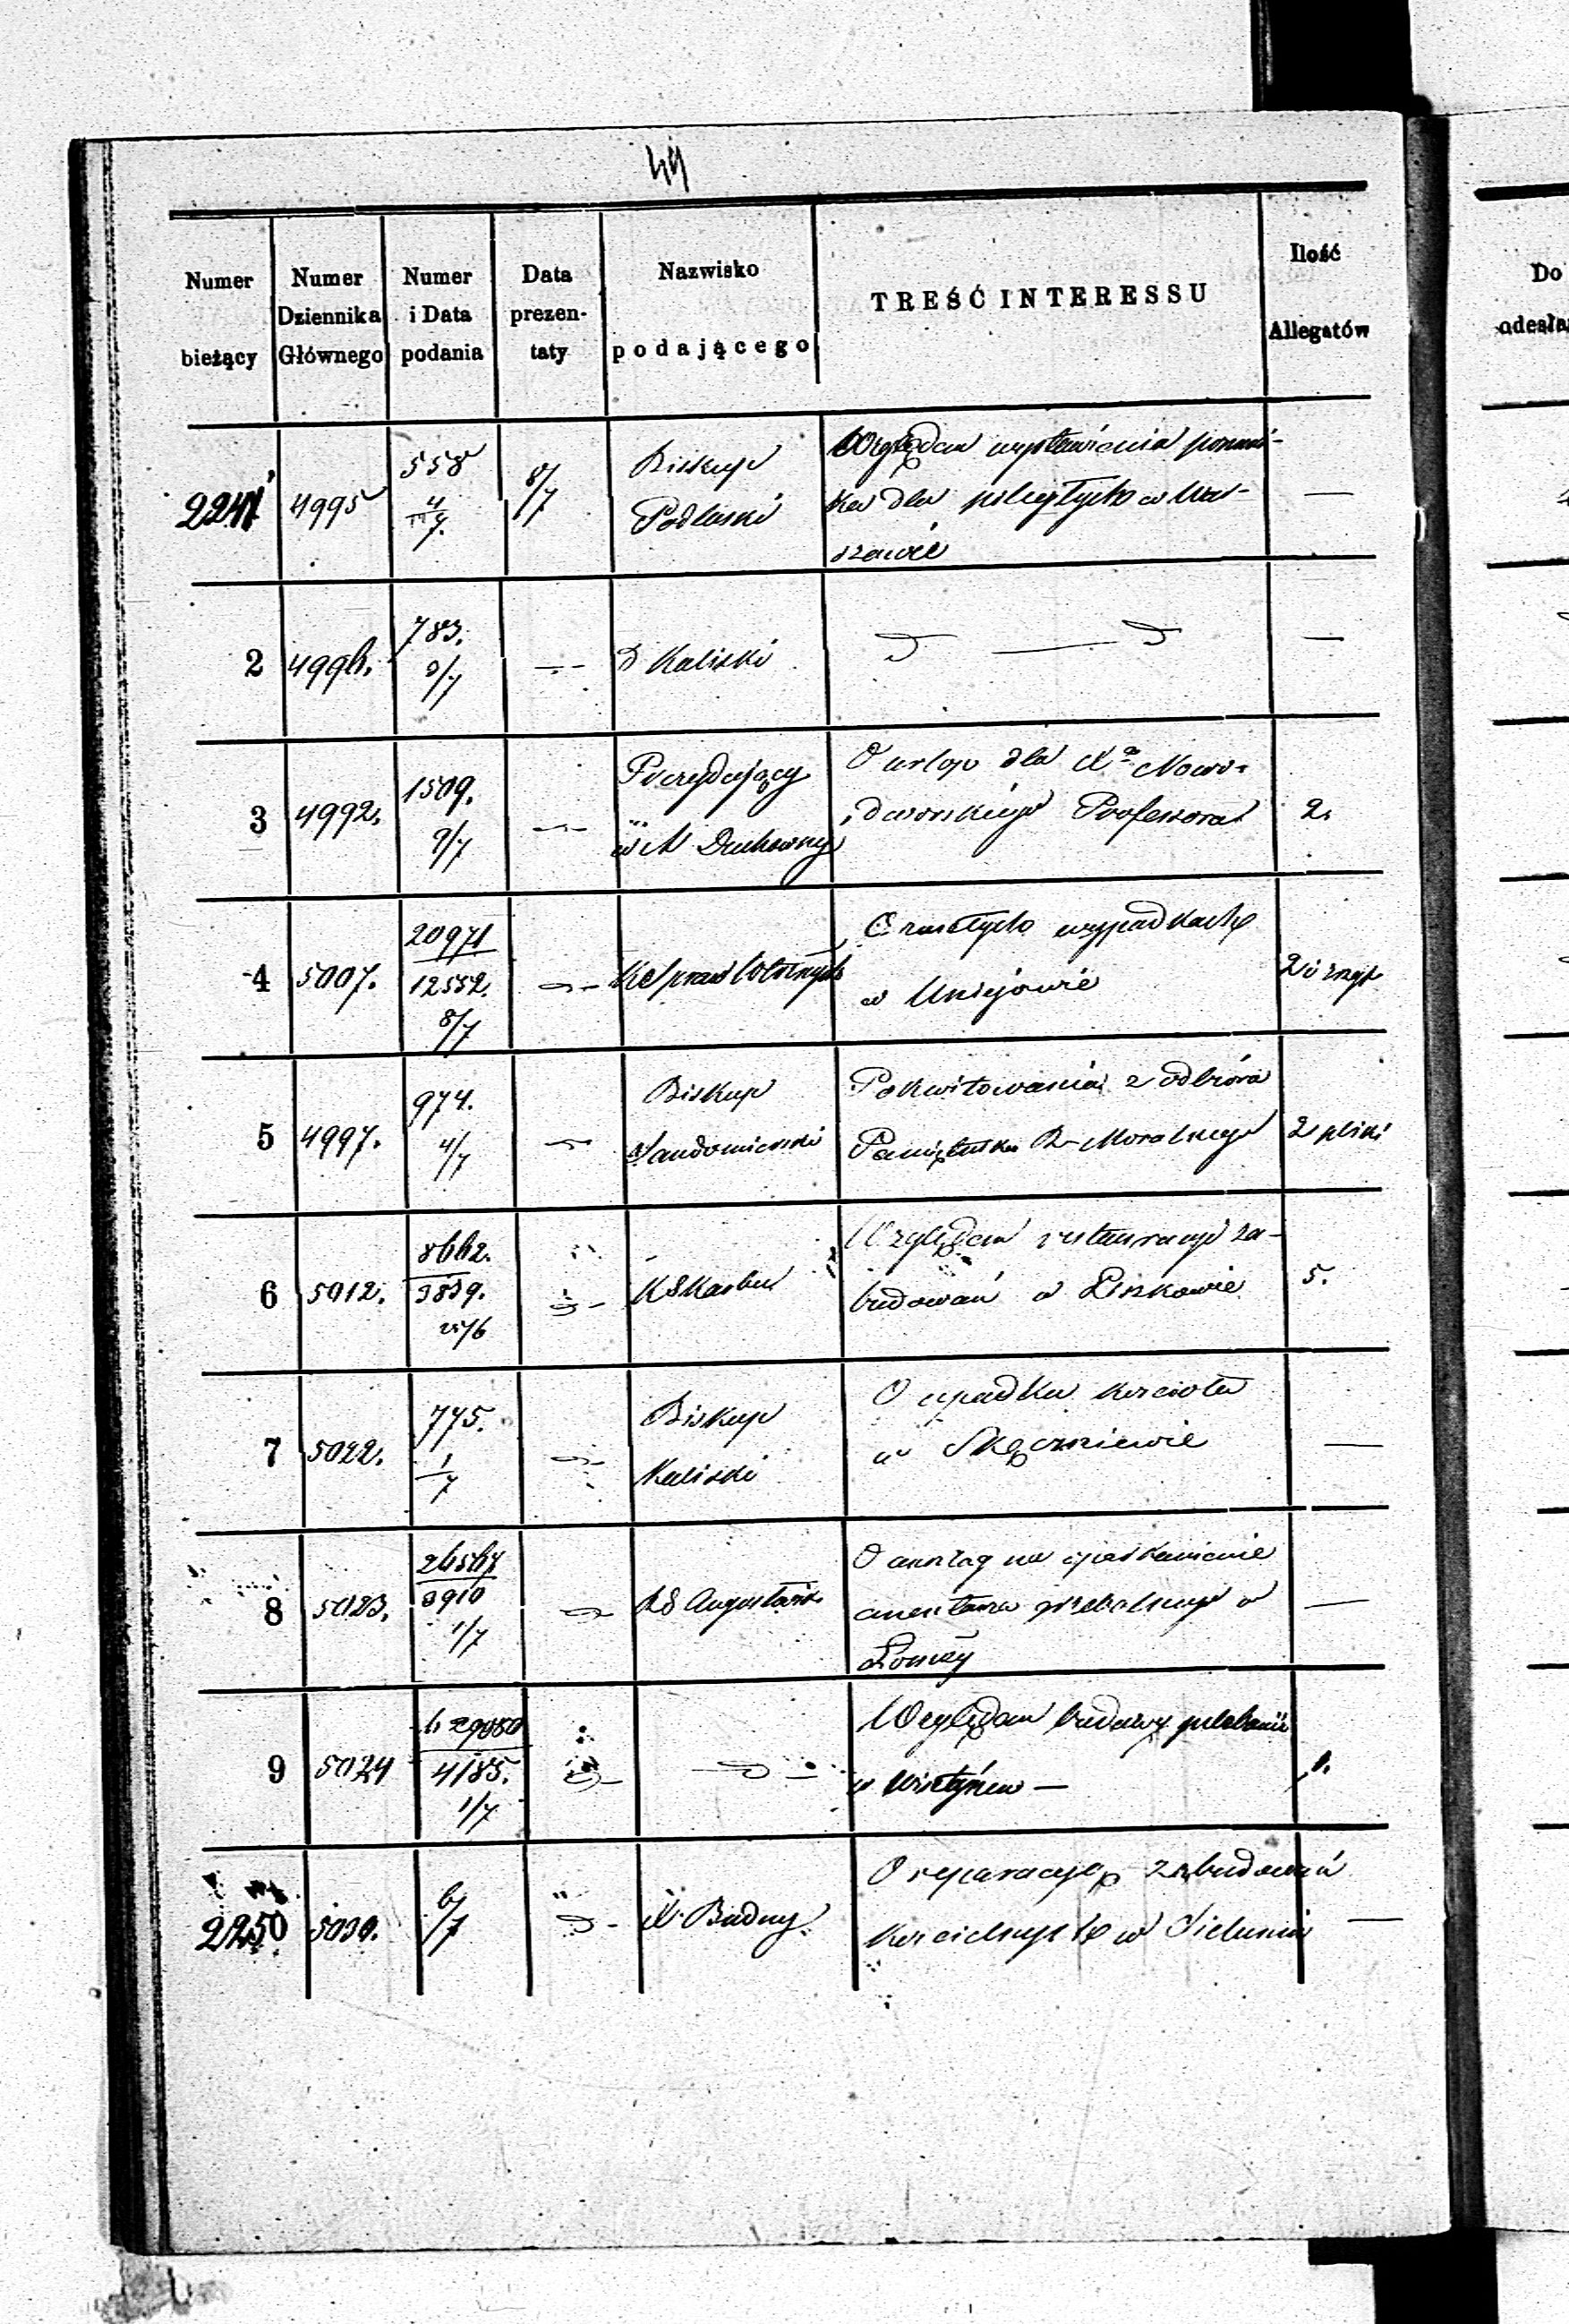 44
Numer bieżący
Numer Dziennika Głównego
Numer i Data podania
Data prezen- taty
Nazwisko podającego
TREŚĆ INTERESSU
Ilość Allegatów
Do
odesła
2241 4995 558 4/7. 8/7 Biskup Podlaski
Względem wystawienia pomni-
ka dla poległych w War-
szawie —
2 4996. 783. 9/7 d Kaliski d — d —
3 4992. 1509. 9/7 Prezydujący w Duchowny
O urlop dla Xa Nowo-
dworskiego Professora 2.
4 5007. 20971 12552. 8/7 K Spraw Wewnętrznych
O zaszłych wypadkach
w Uniejowie 2 i
5 4997. 974. 4/7 Biskup Sandomierski
Pokwitowania z odbioru
Pamiętnika R. Moralnego 2 pliki
6 5012. 8662. 3839. 25/6 K Skarbu
Względem restauracyi za-
budowań w Liskowie 5.
7 5022. 775. 1/7 Biskup Kaliski
O upadku kościoła
w Skęczniewie —
8 5023. 26567 3910 1/7 RG Augustows.
O anszlag na oparkanienie
cmentarza grzebalnego w
Łomży —
9 5024 29980 4185. 1/7 — d —
Względem budowy plebanii
w Wisztyńcu — 1.
2250 5030. 6/7 X. Budny
O reparacyę zabudowań
kościelnych w Sieluniu —